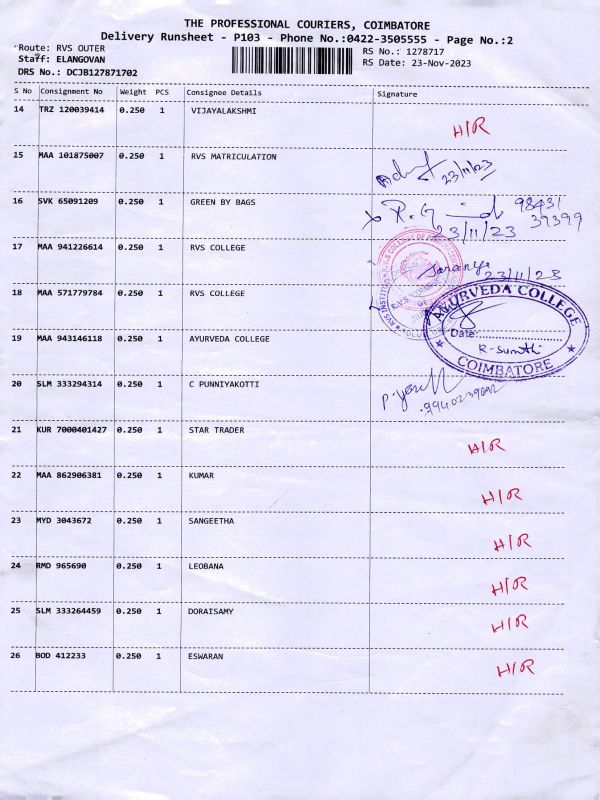 THE PROFESSIONAL COURIERS, COIMBATORE
Delivery Runsheet - P103 - Phone No.:0422-3505555 - Page No.:2
Route: RVS OUTER
Staff: ELANGOVAN
DRS No.: DCJB127871702
RS No.: 1278717
RS Date: 23-Nov-2023
S No Consignment No Weight PCS Consignee Details Signature
14 TRZ 120039414 0.250 1 VIJAYALAKSHMI H/R
15 MAA 101875007 0.250 1 RVS MATRICULATION 23/11/23
16 SVK 65091209 0.250 1 GREEN BY BAGS 98431
37399
23/11/23
17 MAA 941226614 0.250 1 RVS COLLEGE Saranya 23/11/23
18 MAA 571779784 0.250 1 RVS COLLEGE
AYURVEDA COLLEGE
Date:
19 MAA 943146118 0.250 1 AYURVEDA COLLEGE R-Sumthi
COIMBATORE
20 SLM 333294314 0.250 1 C PUNNIYAKOTTI
21 KUR 7000401427 0.250 1 STAR TRADER H/R
22 MAA 862906381 0.250 1 KUMAR H/R
23 MYD 3043672 0.250 1 SANGEETHA H/R
24 RMD 965690 0.250 1 LEOBANA H/R
25 SLM 333264459 0.250 1 DORAISAMY H/R
26 BOD 412233 0.250 1 ESWARAN H/R